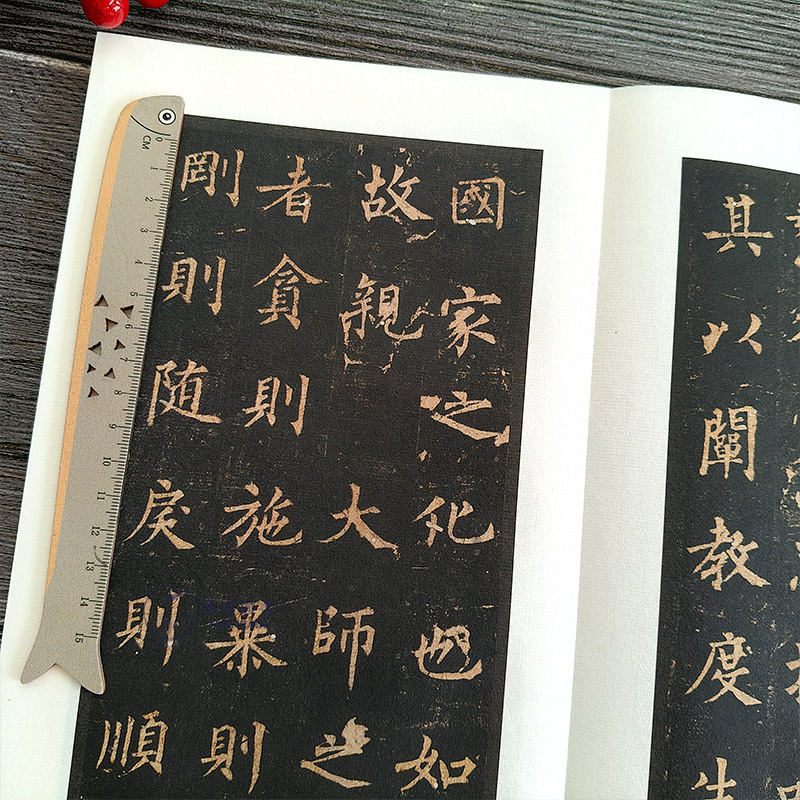 其以闡教度生
國家之化也如
故親大師之
者貪則施暴則
剛則随戾則順
CM 0 1 2 3 4 5 6 7 8 9 10 11 12 13 14 15